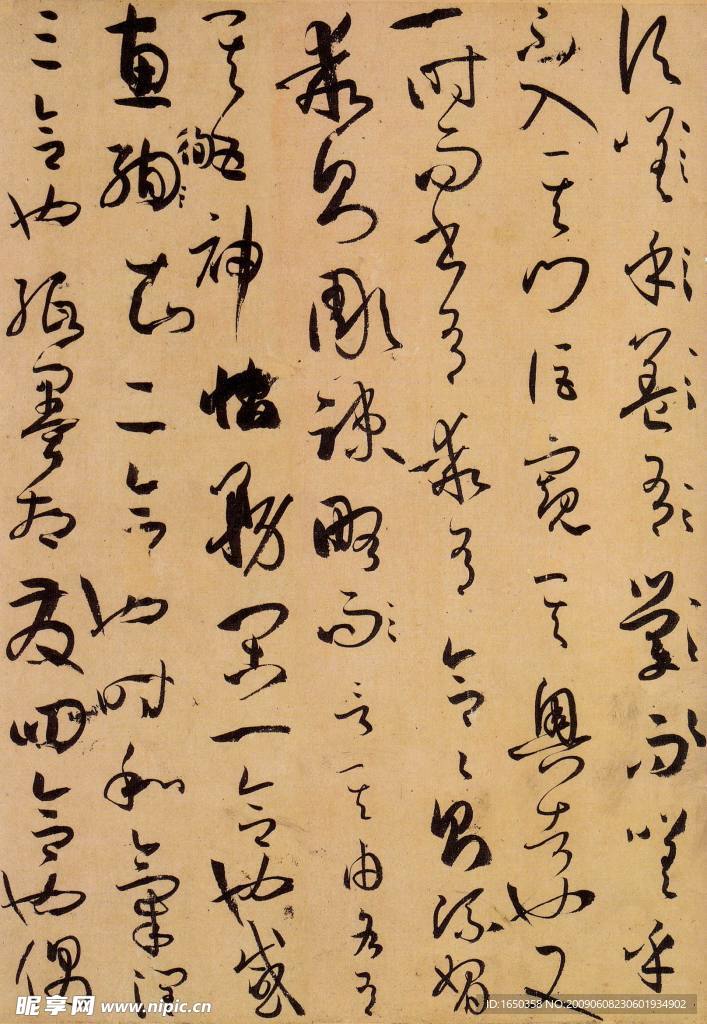 頃嗟嗟乎
不入其門詎窺其奧者也又
一時而書有乖有合合則流媚
乖則彫疎略而言其由各有
其五神怡務閑一合也感
惠徇知二合也時和氣潤
三合也紙墨相發四合也偶
昵享网 www.nipic.cn
ID:1650358 NO:20090608230601934902